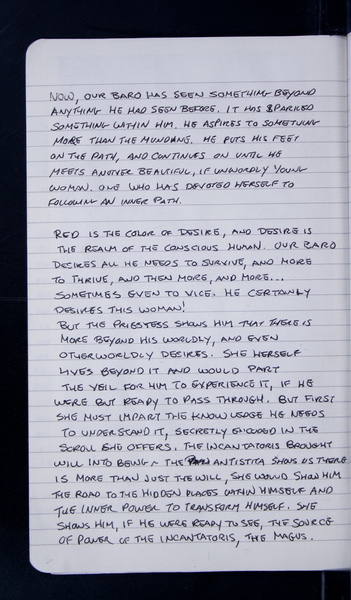 NOW, OUR BARD HAS SEEN SOMETHING BEYOND
ANYTHING HE HAD SEEN BEFORE. IT HAS SPARKED
SOMETHING WITHIN HIM. HE ASPIRES TO SOMETHING
MORE THAN THE MUNDANE. HE PUTS HIS FEET
ON THE PATH, AND CONTINUES ON UNTIL HE
MEETS ANOTHER BEAUTIFUL, IF UNWORDLY YOUNG
WOMAN. ONE WHO HAS DEVOTED HERSELF TO
FOLLOWING AN INNER PATH.
RED IS THE COLOR OF DESIRE, AND DESIRE IS
THE REALM OF THE CONSCIOUS HUMAN. OUR BARD
DESIRES ALL HE NEEDS TO SURVIVE, AND MORE
TO THRIVE, AND THEN MORE, AND MORE...
SOMETIMES EVEN TO VICE. HE CERTAINLY
DESIRES THIS WOMAN!
BUT THE PRIESTESS SHOWS HIM THAT THERE IS
MORE BEYOND HIS WORLDLY, AND EVEN
OTHERWORLDLY DESIRES. SHE HERSELF
LIVES BEYOND IT AND WOULD PART
THE VEIL FOR HIM TO EXPERIENCE IT, IF HE
WERE BUT READY TO PASS THROUGH. BUT FIRST
SHE MUST IMPART THE KNOWLEDGE HE NEEDS
TO UNDERSTAND IT, SECRETLY ENCODED IN THE
SCROLL SHE OFFERS. THE INCANTATORIS BROUGHT
WILL INTO BEING - THE ANTISTITA SHOWS US THERE
IS MORE THAN JUST THE WILL, SHE WOULD SHOW HIM
THE ROAD TO THE HIDDEN PLACES WITHIN HIMSELF AND
THE INNER POWER TO TRANSFORM HIMSELF. SHE
SHOWS HIM, IF HE WERE READY TO SEE, THE SOURCE
OF POWER OF THE INCANTATORIS, THE MAGUS.